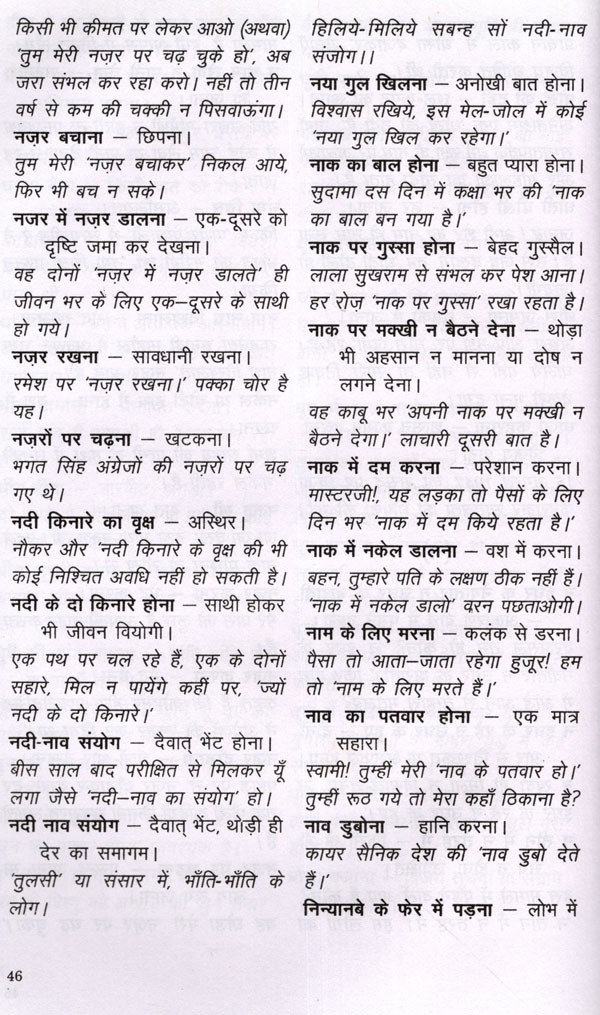 किसी भी कीमत पर लेकर आओ (अथवा)
तुम मेरी नज़र पर चढ़ चुके हो', अब
जरा संभल कर रहा करो। नहीं तो तीन
वर्ष से कम की चक्की न पिसवाऊंगा।
नज़र बचाना – छिपना।
तुम मेरी 'नज़र बचाकर' निकल आये,
फिर भी बच न सके।
नजर में नज़र डालना – एक-दूसरे को
दृष्टि जमा कर देखना।
वह दोनों 'नज़र में नज़र डालते' ही
जीवन भर के लिए एक–दूसरे के साथी
हो गये।
नज़र रखना – सावधानी रखना।
रमेश पर 'नज़र रखना।' पक्का चोर है
यह।
नजरों पर चढ़ना – खटकना।
भगत सिंह अंग्रेजो की नज़रों पर चढ़
गए थे।
नदी किनारे का वृक्ष – अस्थिर।
नौकर और 'नदी किनारे के वृक्ष की भी
कोई निश्चित अवधि नहीं हो सकती है।
नदी के दो किनारे होना – साथी होकर
भी जीवन वियोगी।
एक पथ पर चल रहे हैं, एक के दोनों
सहारे, मिल न पायेंगे कहीं पर, 'ज्यों
नदी के दो किनारे।'
नदी-नाव संयोग – दैवात् भेंट होना।
बीस साल बाद परीक्षित से मिलकर यूँ
लगा जैसे 'नदी–नाव का संयोग' हो।
नदी नाव संयोग – दैवात् भेंट, थोड़ी ही
देर का समागम।
'तुलसी' या संसार में, भाँति-भाँति के
लोग।
हिलिये-मिलिये सबन्ह सों नदी-नाव
संजोग।।
नया गुल खिलना – अनोखी बात होना।
विश्वास रखिये, इस मेल-जोल में कोई
'नया गुल' खिल कर रहेगा।'
नाक का बाल होना – बहुत प्यारा होना।
सुदामा दस दिन में कक्षा भर की 'नाक
का बाल बन गया है।'
नाक पर गुस्सा होना – बेहद गुस्सैल।
लाला सुखराम से संभल कर पेश आना।
हर रोज़ 'नाक पर गुस्सा' रखा रहता है।
नाक पर मक्खी न बैठने देना – थोड़ा
भी अहसान न मानना या दोष न
लगने देना।
वह काबू भर 'अपनी नाक पर मक्खी न
बैठने देगा।' लाचारी दूसरी बात है।
नाक में दम करना – परेशान करना।
मास्टरजी!, यह लड़का तो पैसों के लिए
दिन भर 'नाक में दम किये रहता है।'
नाक में नकेल डालना – वश में करना।
बहन, तुम्हारे पति के लक्षण ठीक नहीं हैं।
'नाक में नकेल डालो' वरन पछताओगी।
नाम के लिए मरना – कलंक से डरना।
पैसा तो आता–जाता रहेगा हुजूर! हम
तो 'नाम के लिए मरते हैं।'
नाव का पतवार होना – एक मात्र
सहारा।
स्वामी! तुम्हीं मेरी 'नाव के पतवार हो।'
तुम्हीं रूठ गये तो मेरा कहाँ ठिकाना है?
नाव डुबोना – हानि करना।
कायर सैनिक देश की 'नाव डुबो देते
हैं।'
निन्यानबे के फेर में पड़ना – लोभ में
46